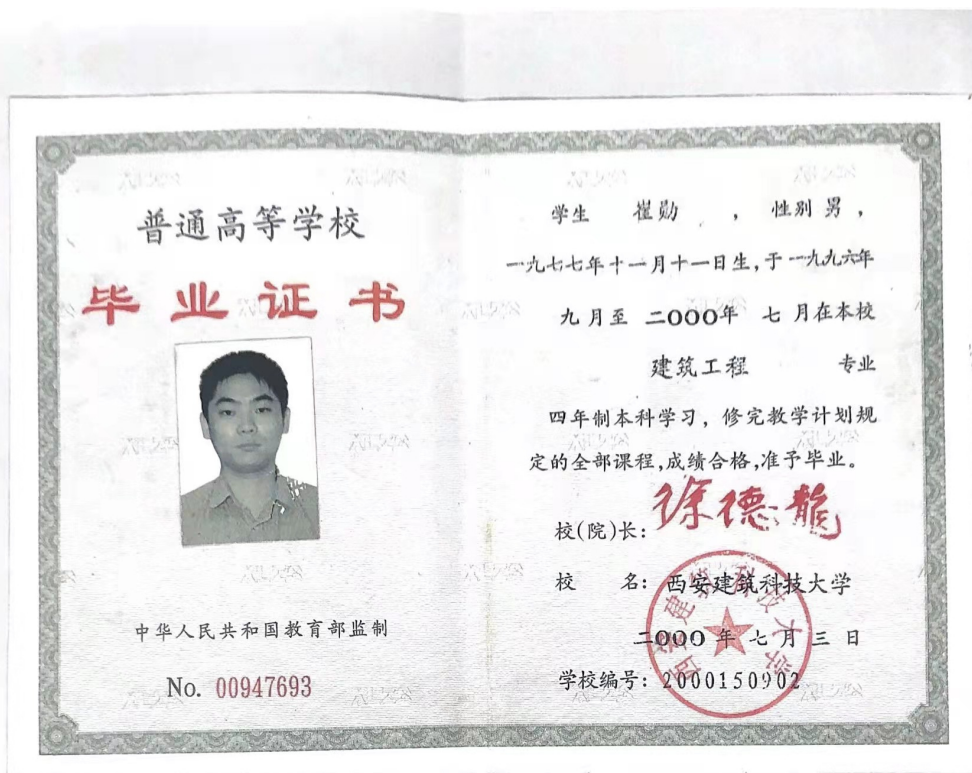 普通高等学校
毕业证书
中华人民共和国教育部监制
No. 00947693
学生 崔勋 ，性别 男，
一九七七年十一月十一日生，于一九九六年
九月至 二OOO年 七 月在本校
建筑工程 专业
四年制本科学习，修完教学计划规
定的全部课程，成绩合格，准予毕业。
校(院)长：徐德龍
校 名：西安建筑科技大学
二OOO 年 七 月 三 日
学校编号：2000150902
西安建筑科技大学